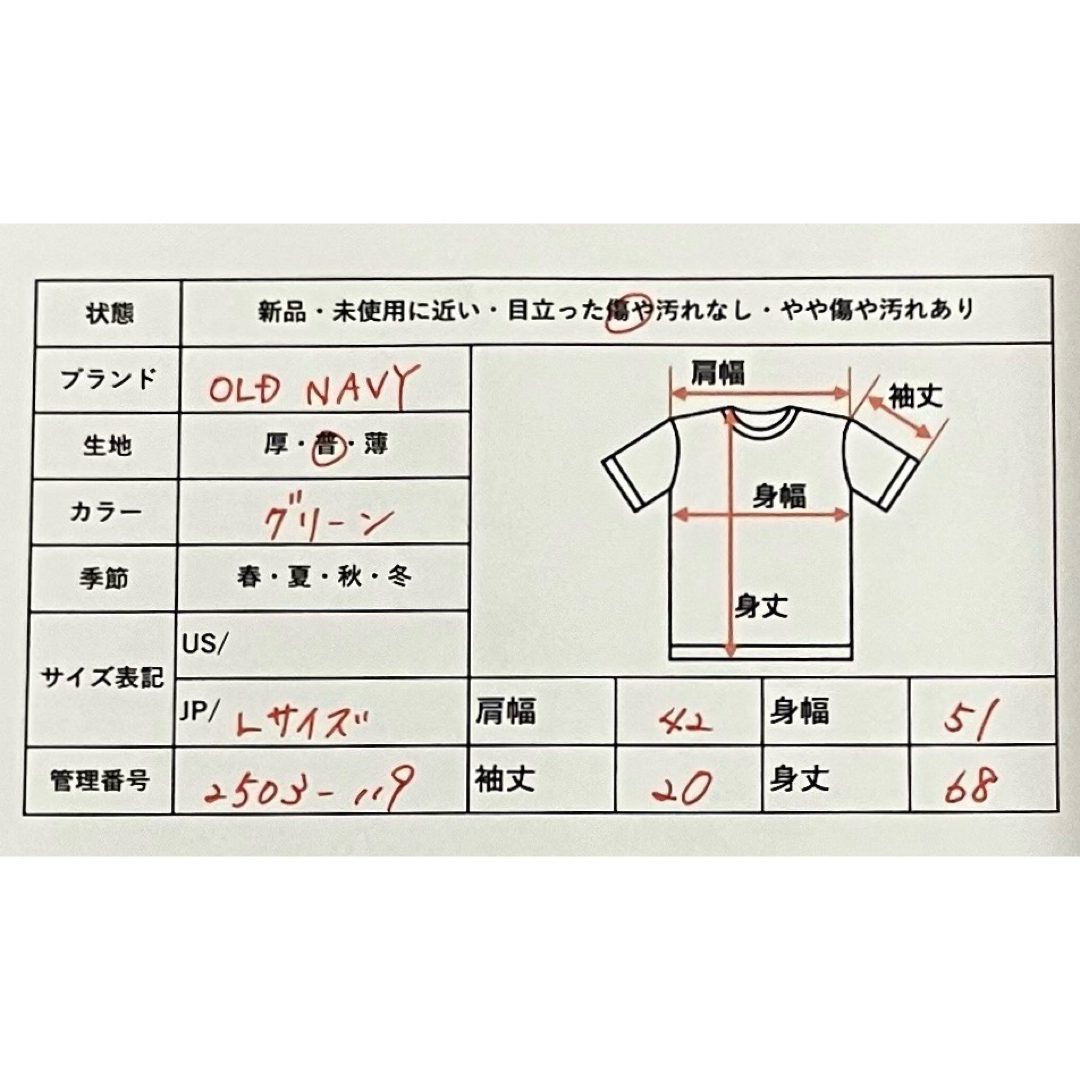 状態 新品・未使用に近い・目立った傷や汚れなし・やや傷や汚れあり
ブランド OLD NAVY
肩幅
袖丈
生地 厚・普・薄
身幅
カラー グリーン
季節 春・夏・秋・冬
身丈
サイズ表記
US/
JP/ Lサイズ 肩幅 42 身幅 51
管理番号 2503-119 袖丈 20 身丈 68